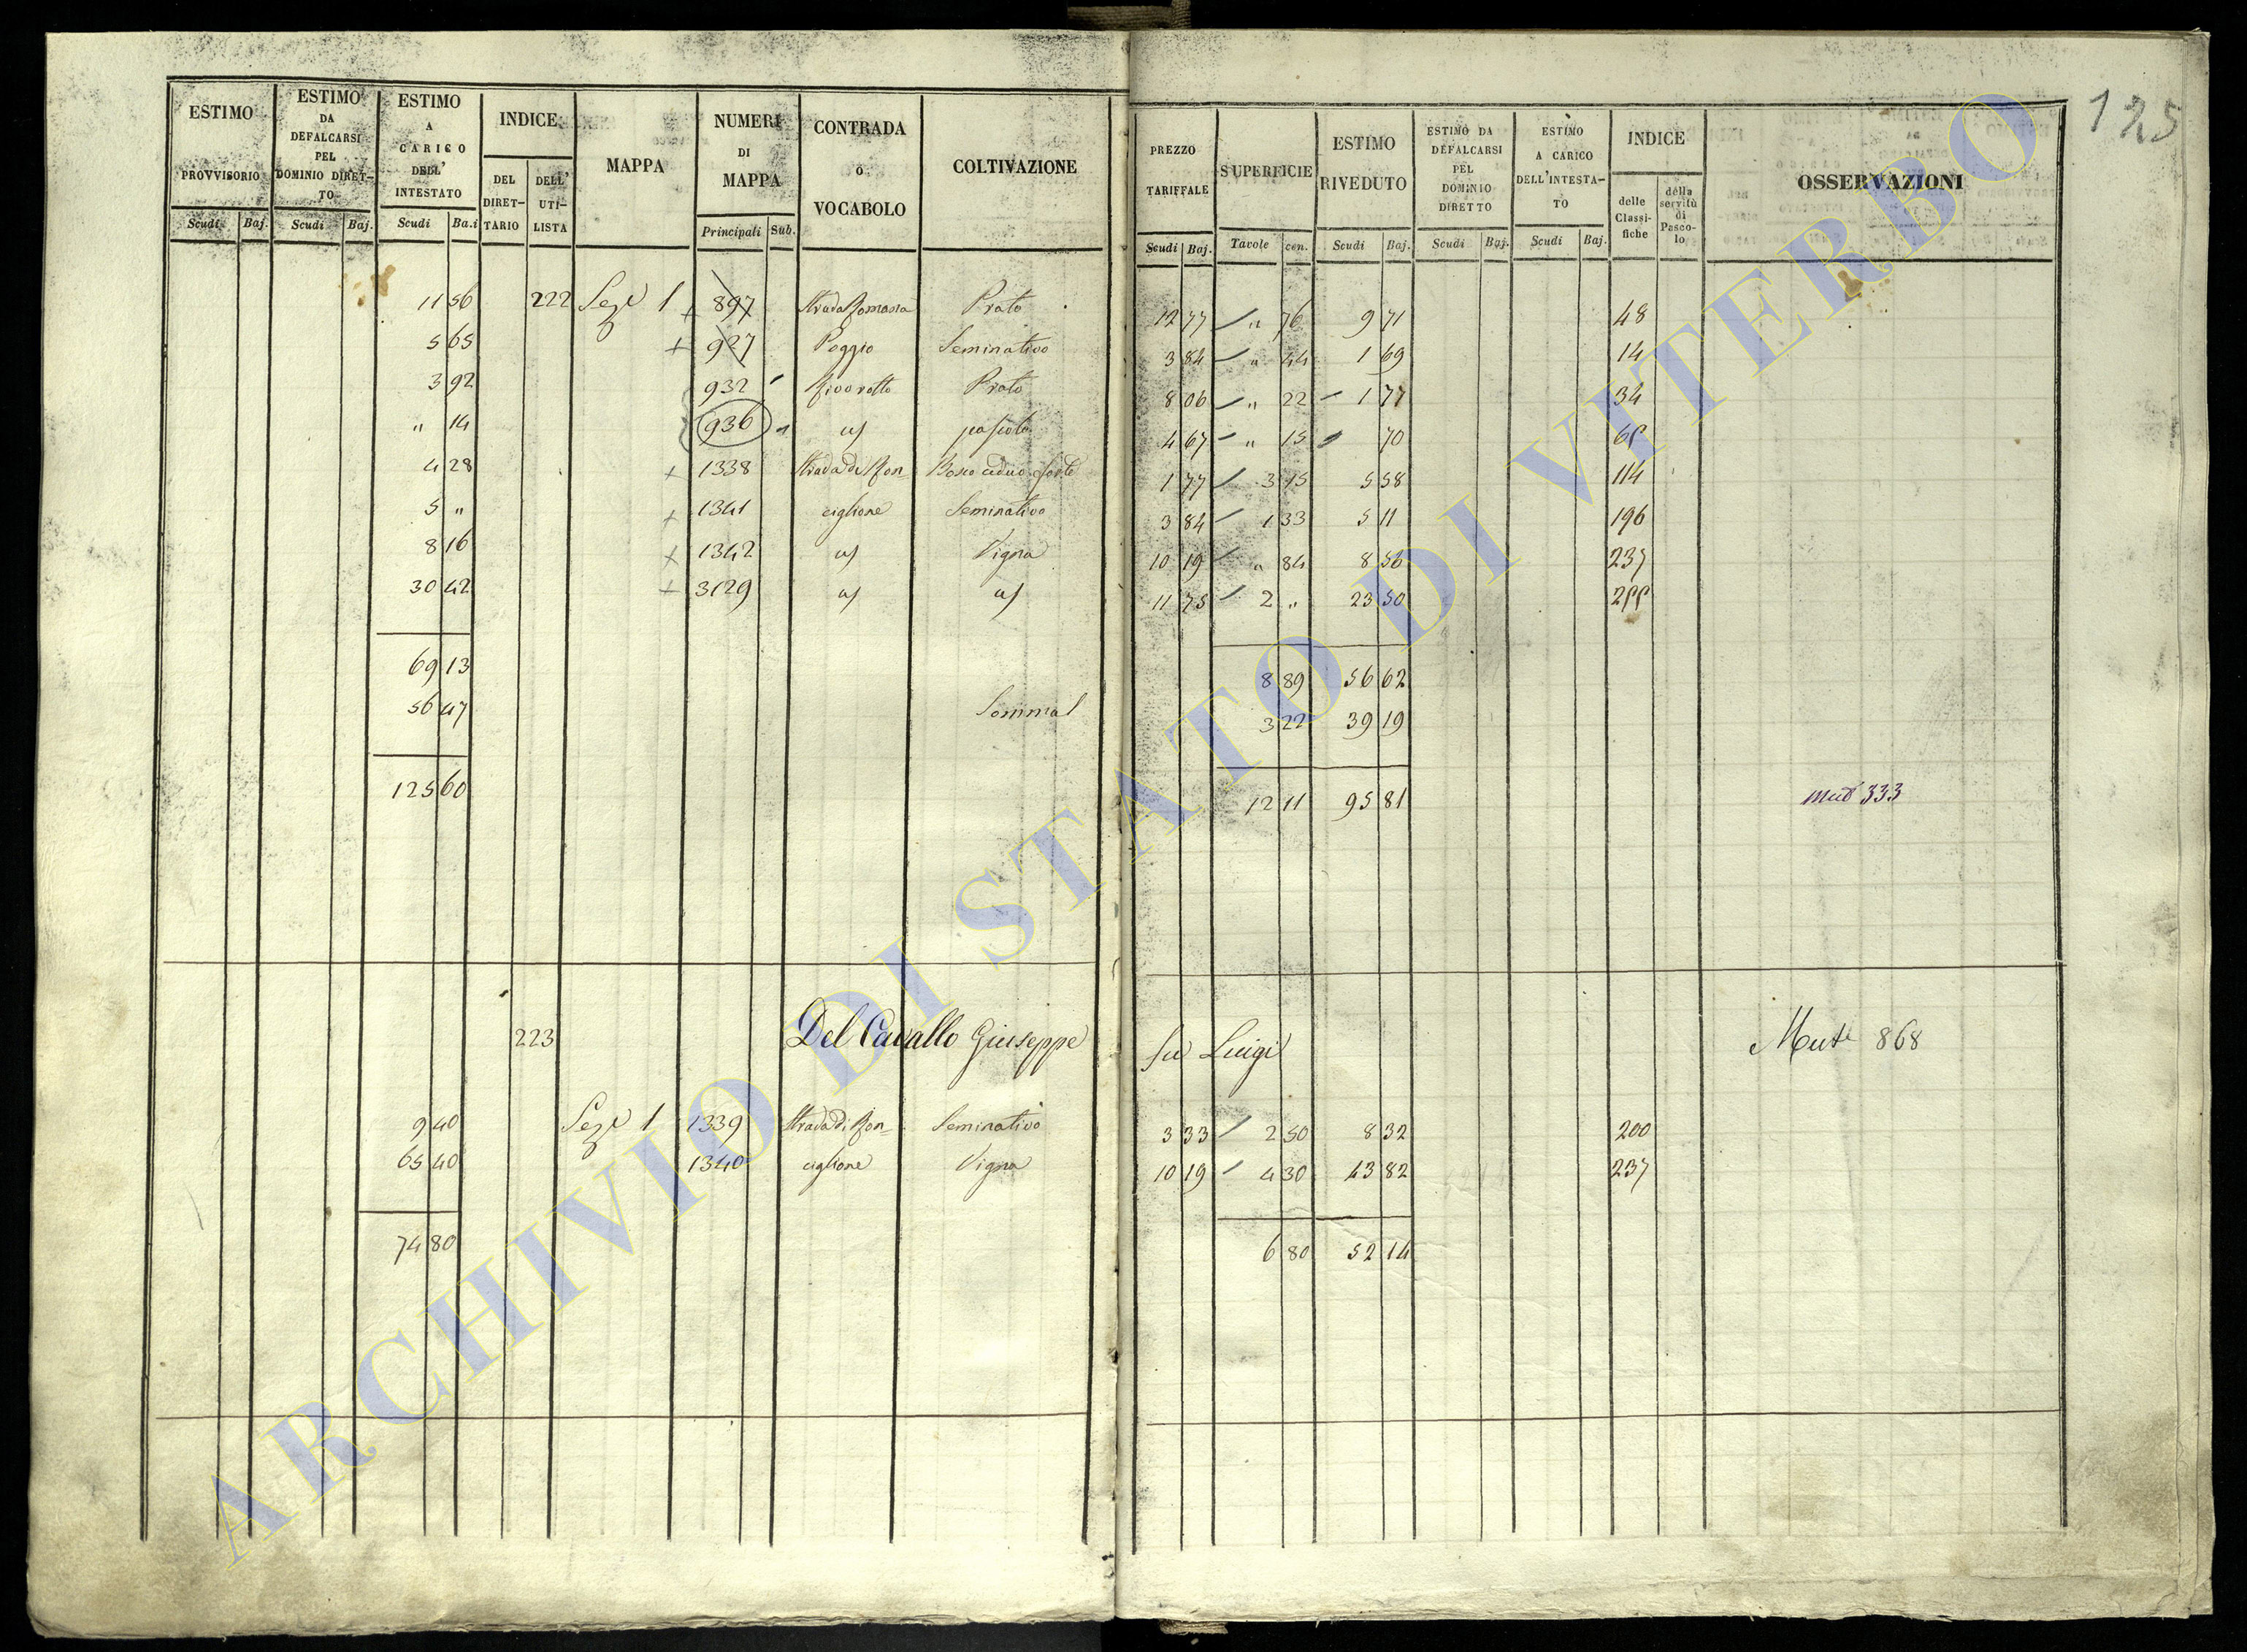 125
ESTIMO PROVVISORIO Scudi Baj.
ESTIMO DA DEFALCARSI PEL DOMINIO DIRET-TO Scudi Baj.
ESTIMO A CARICO DELL' INTESTATO Scudi Ba.i
INDICE DEL DIRET-TARIO DELL' UTI-LISTA
MAPPA
NUMERI DI MAPPA Principali Sub.
CONTRADA O VOCABOLO
COLTIVAZIONE
PREZZO TARIFFALE Scudi Baj.
SUPERFICIE Tavole cen.
ESTIMO RIVEDUTO Scudi Baj.
ESTIMO DA DEFALCARSI PEL DOMINIO DIRETTO Scudi Baj.
ESTIMO A CARICO DELL'INTESTA-TO Scudi Baj.
INDICE delle Classi-fiche della servitù di Pasco-lo
OSSERVAZIONI
11 56 222 Sez.e 1 + 897 Strada Romana Prato 12 77 " 76 9 71 48
5 65 + 927 Poggio Seminativo 3 84 " 44 1 69 14
3 92 932 Rivo rotto Prato 8 06 " 22 1 77 34
" 14 936 pascolo 4 67 " 15 70
4 28 + 1338 Strada di Ron= Bosco ceduo forte 1 77 3 15 5 58 114
5 " + 1341 ciglione Seminativo 3 84 1 33 5 11 196
8 16 + 1342 Vigna 10 19 " 84 8 56 237
30 42 + 3129 11 75 2 " 23 50
69 13 8 89 56 62
56 47 Somma 3 22 39 19
125 60 12 11 95 81 Mut 333
223 Del Cavallo Giuseppe fu Luigi Mut 868
9 40 Sez.e 1 1339 Strada di Ron= Seminativo 3 33 2 50 8 32 200
65 40 1340 ciglione Vigna 10 19 4 30 43 82 237
74 80 6 80 52 14
ARCHIVIO DI STATO DI VITERBO